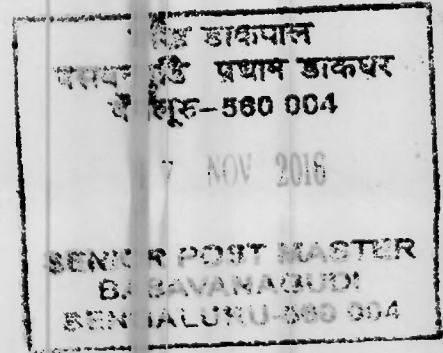 डाकपाल
प्रधान डाकघर
560 004
7 NOV 2016
SENIOR POST MASTER
BASAVANAGUDI
BENGALURU-560 004